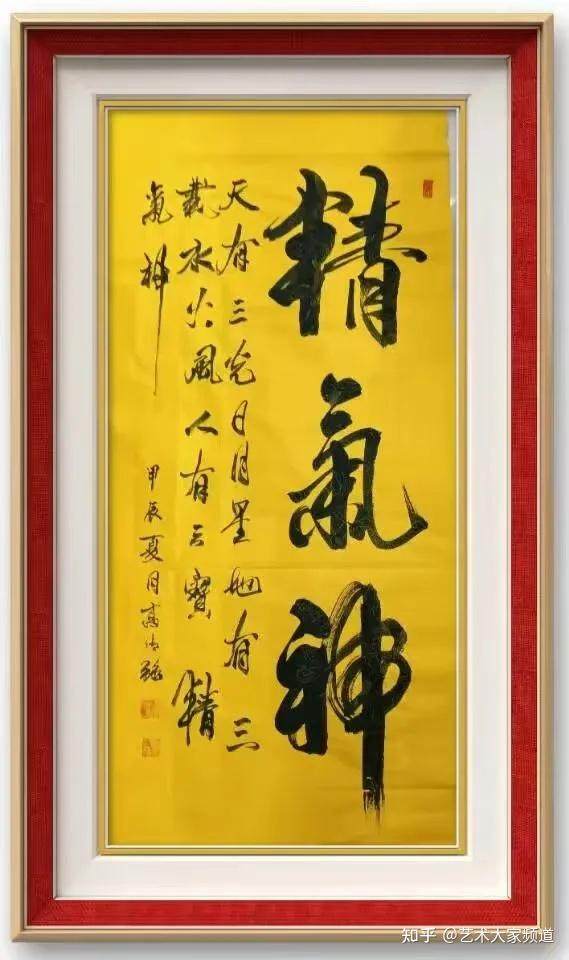 精氣神
天有三光日月星地有三
載水火風人有三寶精
氣神
甲辰夏月高
知乎 @艺术大家频道